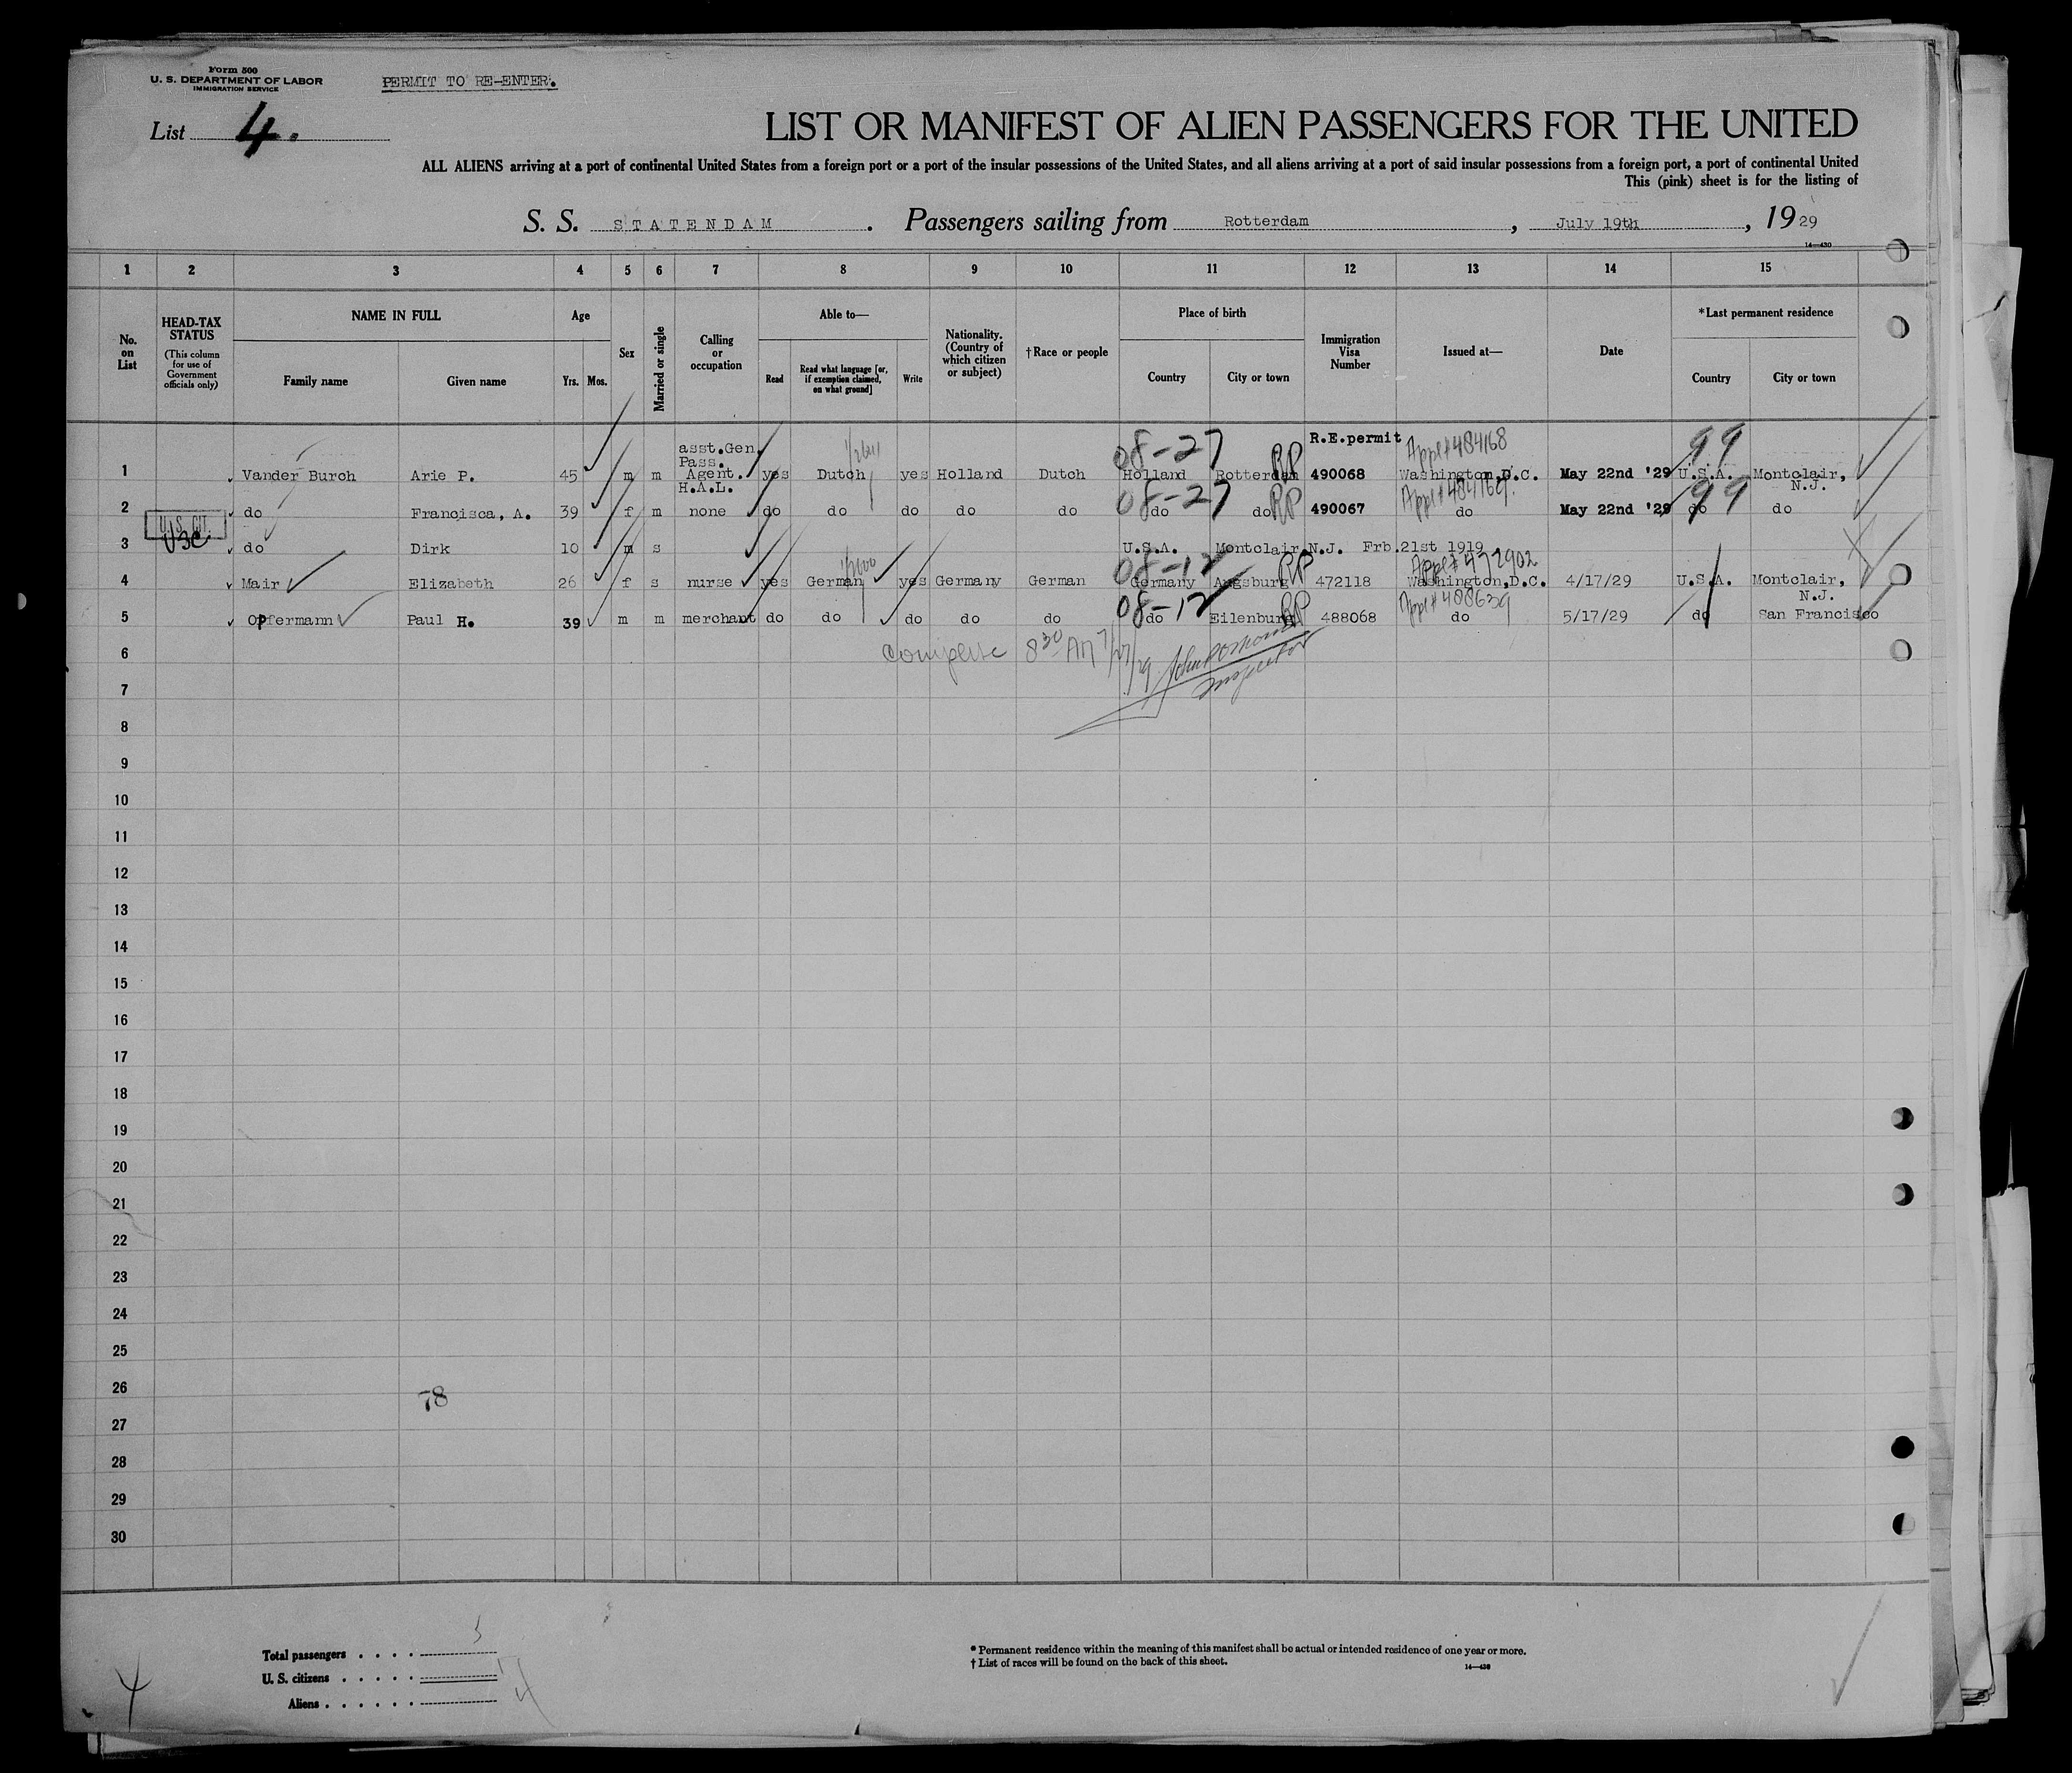 Form 500
U. S. DEPARTMENT OF LABOR
IMMIGRATION SERVICE
PERMIT TO RE-ENTER.
List 4.
LIST OR MANIFEST OF ALIEN PASSENGERS FOR THE UNITED
ALL ALIENS arriving at a port of continental United States from a foreign port or a port of the insular possessions of the United States, and all aliens arriving at a port of said insular possessions from a foreign port, a port of continental United
This (pink) sheet is for the listing of
S. S. STATENDAM . Passengers sailing from Rotterdam , July 19th , 19 29
14—430
1 2 3 4 5 6 7 8 9 10 11 12 13 14 15
No. on List
HEAD-TAX STATUS
(This column for use of Government officials only)
NAME IN FULL
Family name Given name
Age
Yrs. Mos.
Sex
Married or single
Calling or occupation
Able to—
Read
Read what language [or, if exemption claimed, on what ground]
Write
Nationality. (Country of which citizen or subject)
†Race or people
Place of birth
Country City or town
Immigration Visa Number
Issued at—
Date
*Last permanent residence
Country City or town
R.E.permit Appl#484168 99
08-27 RP
1 Vander Burch Arie P. 45 m m asst.Gen. Pass. Agent. H.A.L. yes Dutch yes Holland Dutch Holland Rotterdam 490068 Washington,D.C. May 22nd '29 U.S.A. Montclair, N.J.
08-27 RP 99
2 do Francisca, A. 39 f m none do do do do do do do 490067 do May 22nd '29 do do
U.S. CIT.
USC
3 do Dirk 10 m s U.S.A. Montclair N.J. Frb.21st 1919
08-12 RP Appl#472902
4 Mair Elizabeth 26 f s nurse yes German yes Germany German Germany Augsburg 472118 Washington,D.C. 4/17/29 U.S.A. Montclair, N.J.
08-12 RP Appl#488639
5 Opfermann Paul H. 39 m m merchant do do do do do do Eilenburg 488068 do 5/17/29 do San Francisco
6 Complete 8 30 AM 7/27/29
Inspector
7
8
9
10
11
12
13
14
15
16
17
18
19
20
21
22
23
24
25
26 78
27
28
29
30
Total passengers . . . . 5
U. S. citizens . . . . . 1
Aliens . . . . . . 4
* Permanent residence within the meaning of this manifest shall be actual or intended residence of one year or more.
† List of races will be found on the back of this sheet.
14—430